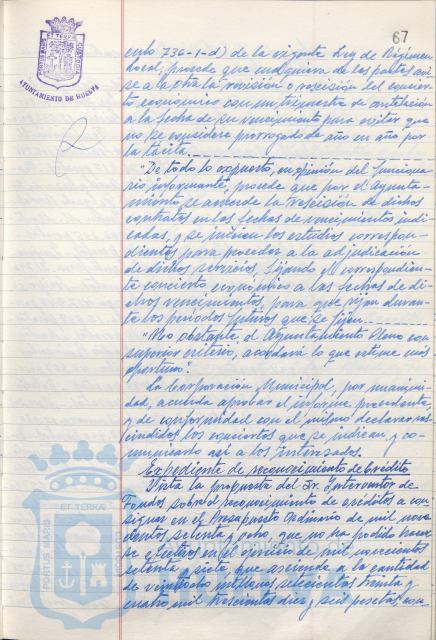 67
AYUNTAMIENTO DE HUELVA
culo 736-1-d) de la vigente Ley de Régimen
Local, procede que cualquiera de las partes avi-
se a la otra la revisión o rescisión del concier-
to económico con un trimestre de antelación
a la fecha de su vencimiento para evitar que
no se considere prorrogado de año en año por
la tácita.
"De todo lo expuesto, en opinión del funciona-
rio informante, procede que por el Ayunta-
miento se acuerde la rescisión de dichos
contratos en las fechas de vencimientos indi-
cadas, y se inicien los estudios correspon-
dientes para proceder a la adjudicación
de dichos servicios, fijando el correspondien-
te concierto económico a las fechas de di-
chos vencimientos, para que rijan duran-
te los períodos futuros que se fijen.
"No obstante el Ayuntamiento Pleno con
superior criterio, acordará lo que estime más
oportuno".
La Corporación Municipal, por unanimi-
dad, acuerda aprobar el informe precedente
y de conformidad con el mismo declarar res-
cindidos los conciertos que se indican, y co-
municarlo así a los interesados.
Expediente de reconocimiento de Crédito
Vista la propuesta del Sr. Interventor de
Fondos sobre el reconocimiento de créditos a con-
signar en el Presupuesto Ordinario de mil nove-
cientos setenta y ocho, que no ha podido hacer-
se efectivos en el ejercicio de mil novecientos
setenta y siete, que asciende a la cantidad
de veintiocho millones setecientas treinta y
cuatro mil trescientas diez y seis pesetas, con
PORTUS MARIS
ET TERRAE